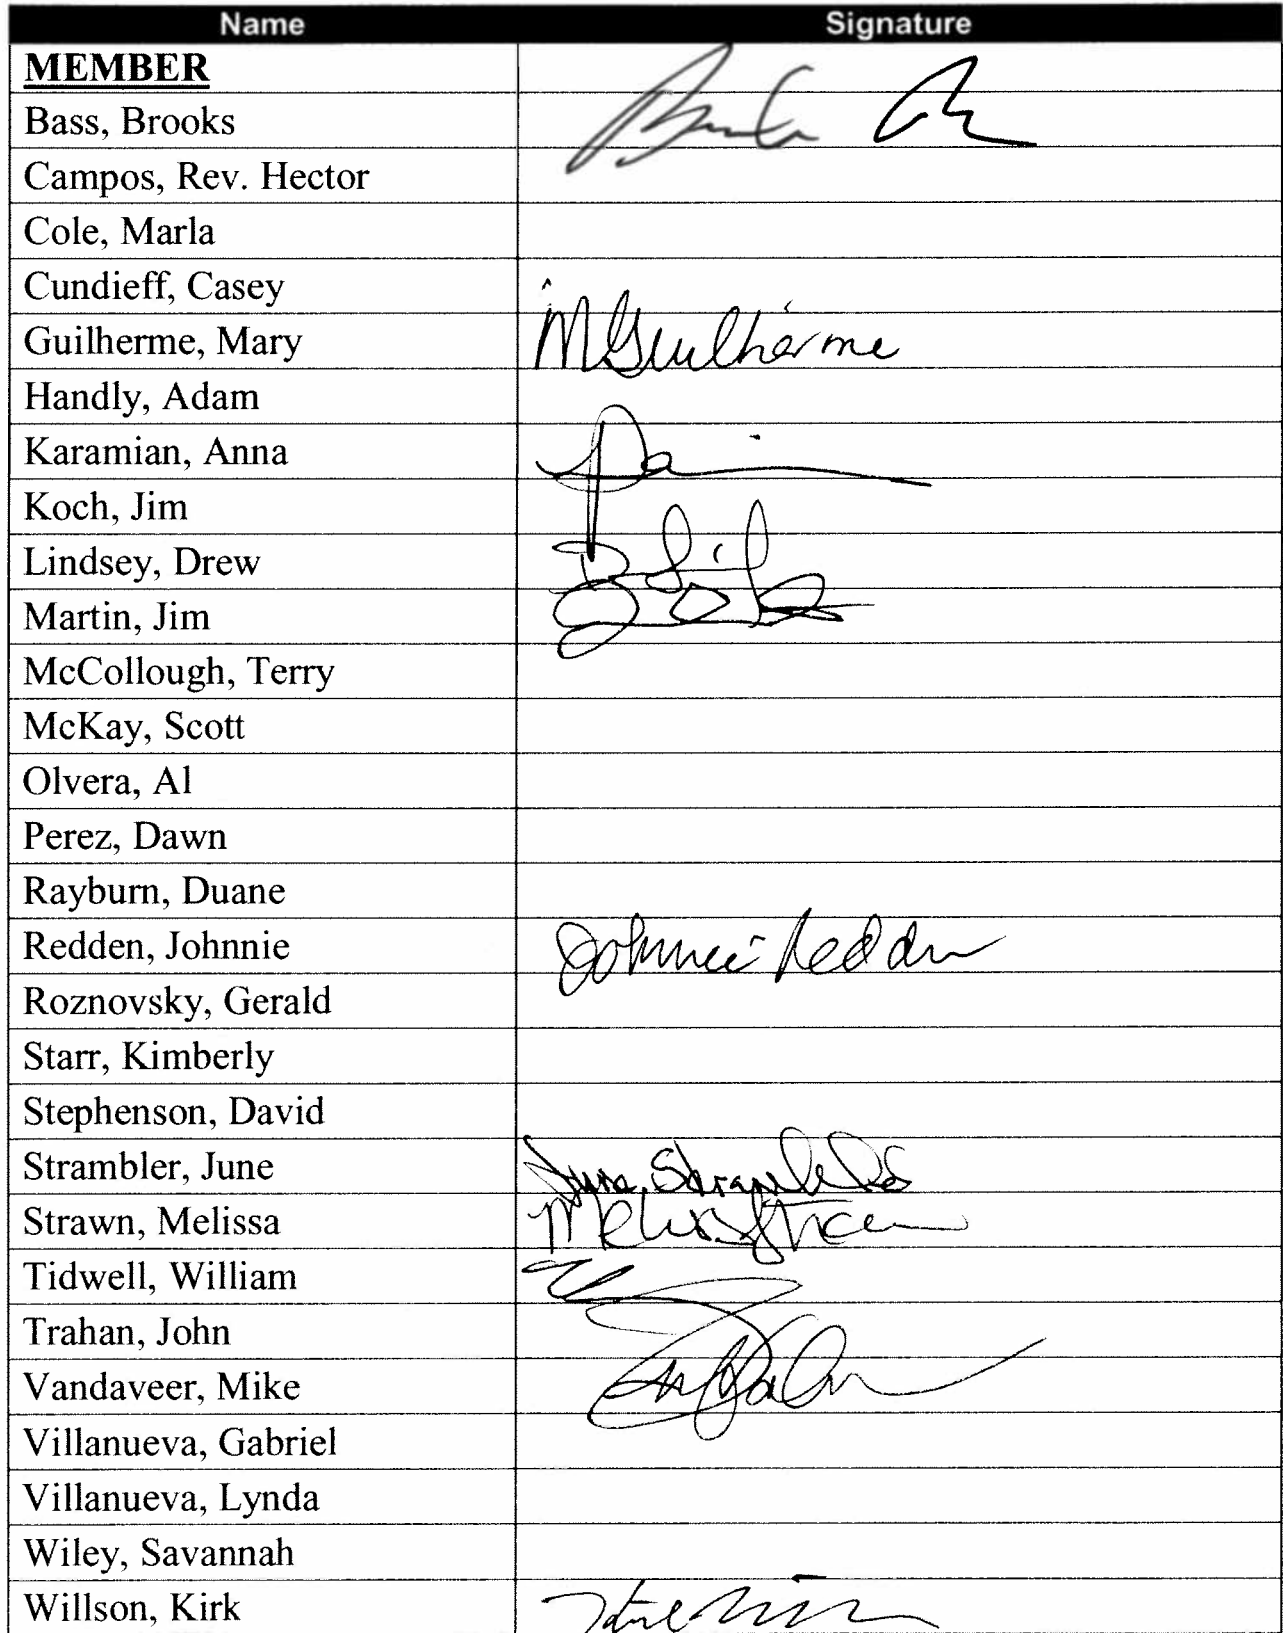 Name Signature
MEMBER
Bass, Brooks
Campos, Rev. Hector
Cole, Marla
Cundieff, Casey
Guilherme, Mary MGuilherme
Handly, Adam
Karamian, Anna
Koch, Jim
Lindsey, Drew
Martin, Jim
McCollough, Terry
McKay, Scott
Olvera, Al
Perez, Dawn
Rayburn, Duane
Redden, Johnnie Johnnie Redden
Roznovsky, Gerald
Starr, Kimberly
Stephenson, David
Strambler, June June Strambler
Strawn, Melissa Melissa Strawn
Tidwell, William
Trahan, John
Vandaveer, Mike
Villanueva, Gabriel
Villanueva, Lynda
Wiley, Savannah
Willson, Kirk